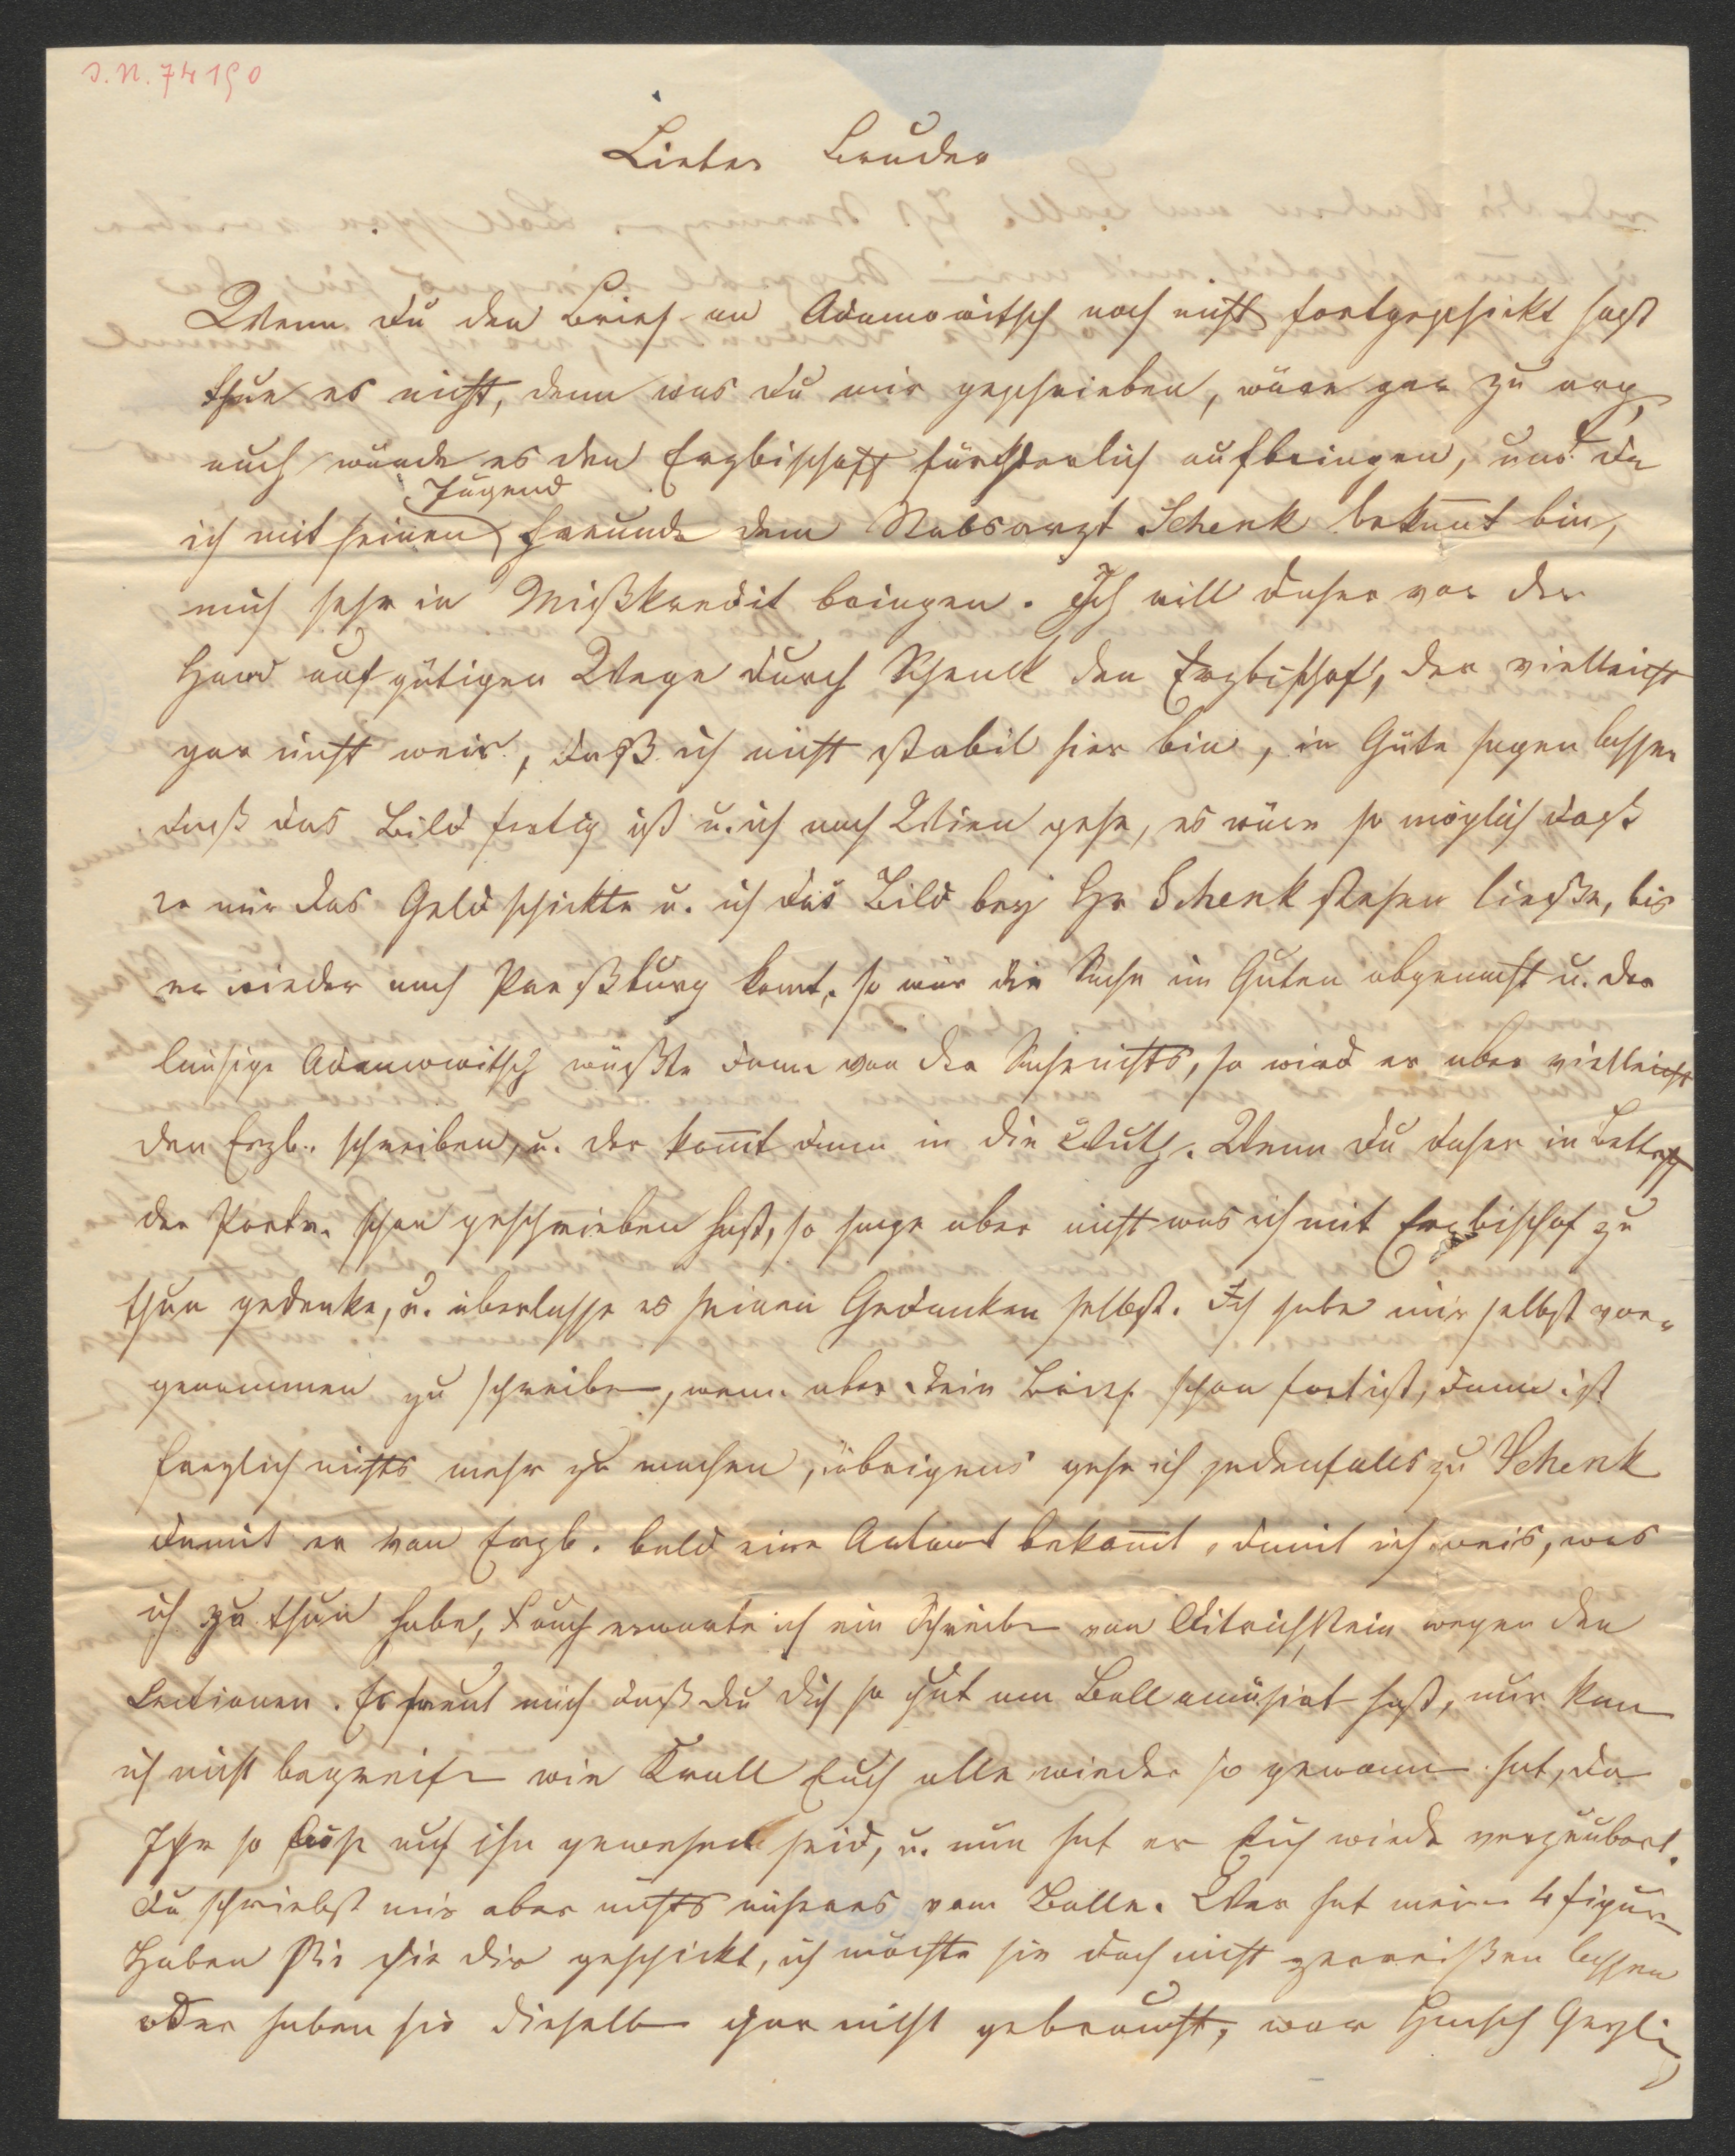 I.N. 74190
Lieber Bruder
Wenn du den Brief an Adamowitsch noch nicht fortgeschickt hast
thue es nicht, denn was du mir geschrieben, wäre gar zu arg,
auch würde es den Erzbischoff fürchterlich aufbringen, und da
Jugend
ich mit seinen Freunde dem Stabsarzt Schenk bekannt bin,
mich sehr in Mißkredit bringen. Ich will daher vor der
Hand auf gütigen Wege durch Schenk den Erzbischof, der vielleicht
gar nicht weis, daß ich nicht stabil hier bin, in Güte sagen lassen
daß das Bild fertig ist u. ich nach Wien gehe, es wäre so möglich daß
er mir das Geld schickte u. ich das Bild bey Hr Schenk stehen ließe, bis
er wieder nach Preßburg komt, so wär die Sache im Guten abgemacht u. der
lausige Adamowitsch wüßte dann von der Sache nichts, so wird er aber vielleicht
den Erzb. schreiben, u. der komt dann in die Wuth. Wenn du daher in Betreff
der Portr. schon geschrieben hast, so sage aber nicht was ich mit Erzbischof zu
thun gedenke, u. überlasse es seinen Gedanken selbst. Ich habe mir selbst vor-
genommen zu schreiben, wenn aber dein Brief schon fort ist, dann ist
freylich nichts mehr zu machen, übrigens gehe ich jedenfalls zu Schenk
damit er von Erzb. bald eine Antwort bekomt, damit ich weis, was
ich zu thun habe, auch erwarte ich ein Schreiben von Ditrichstein wegen den
Lectionen. Es freut mich daß du dich so gut am Ball amüsirt hast, nur kan
ich nicht begreifen wie Krall Euch alle wieder so gewonnen hat, da
Ihr so böse auf ihn gewesen seid, u. nun hat er Euch wieder verzaubert.
Du schriebst mir aber nichts näheres vom Balle. Wer hat meine 4 Figuren
Haben Sie sie dir geschickt, ich möchte sie doch nicht zerreißen lassen
oder haben sie dieselben gar nicht gebraucht, war